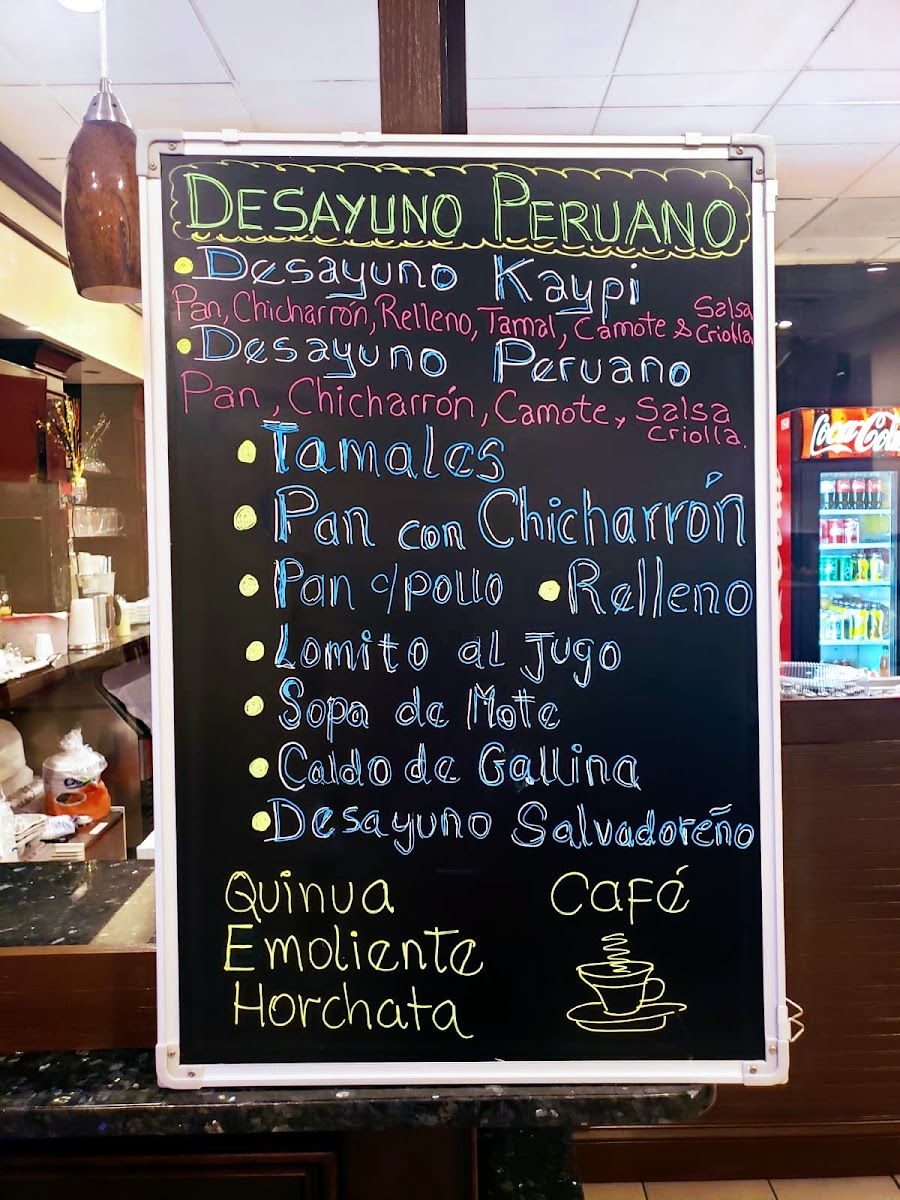 DESAYUNO PERUANO
• Desayuno Kaypi
Pan, Chicharrón, Relleno, Tamal, Camote & Salsa Criolla
• Desayuno Peruano
Pan, Chicharrón, Camote, Salsa criolla.
• Tamales
• Pan con Chicharrón
• Pan c/pollo • Relleno
• Lomito al Jugo
• Sopa de Mote
• Caldo de Gallina
• Desayuno Salvadoreño
Quinua Café
Emoliente
Horchata
Coca-Cola